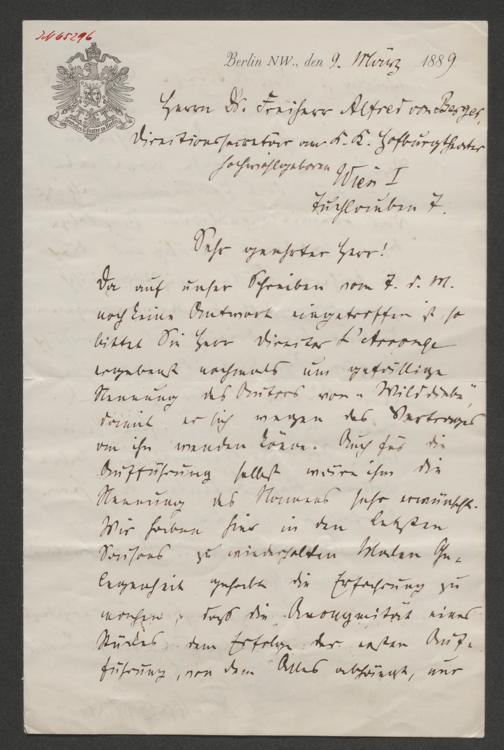 JN 65296
Berlin NW., den 9. März 1889
Herrn Dr. Freiherr Alfred von Berger,
Directionssecretär am K. K. Hofburgtheater
Hochwohlgeboren
Wien I
Tuchlauben 7.
Sehr geehrter Herr!
Da auf unser Schreiben vom 7. d. M.
noch keine Antwort eingetroffen ist so
bittet Sie Herr Director L'Arronge
ergebenst nochmals um gefällige
Nennung des Autors von "Wilddiebe",
damit er sich wegen des Vertrages
an ihn wenden könne. Auch für die
Aufführung selbst wäre ihm die
Nennung des Namens sehr erwünscht.
Wir haben hier in den letzten
Saisons zu wiederholten Malen Ge-
legenheit gehabt die Erfahrung zu
machen, daß die Anonymität eines
Stückes dem Erfolge der ersten Auf-
führung, von dem Alles abhängt, nur